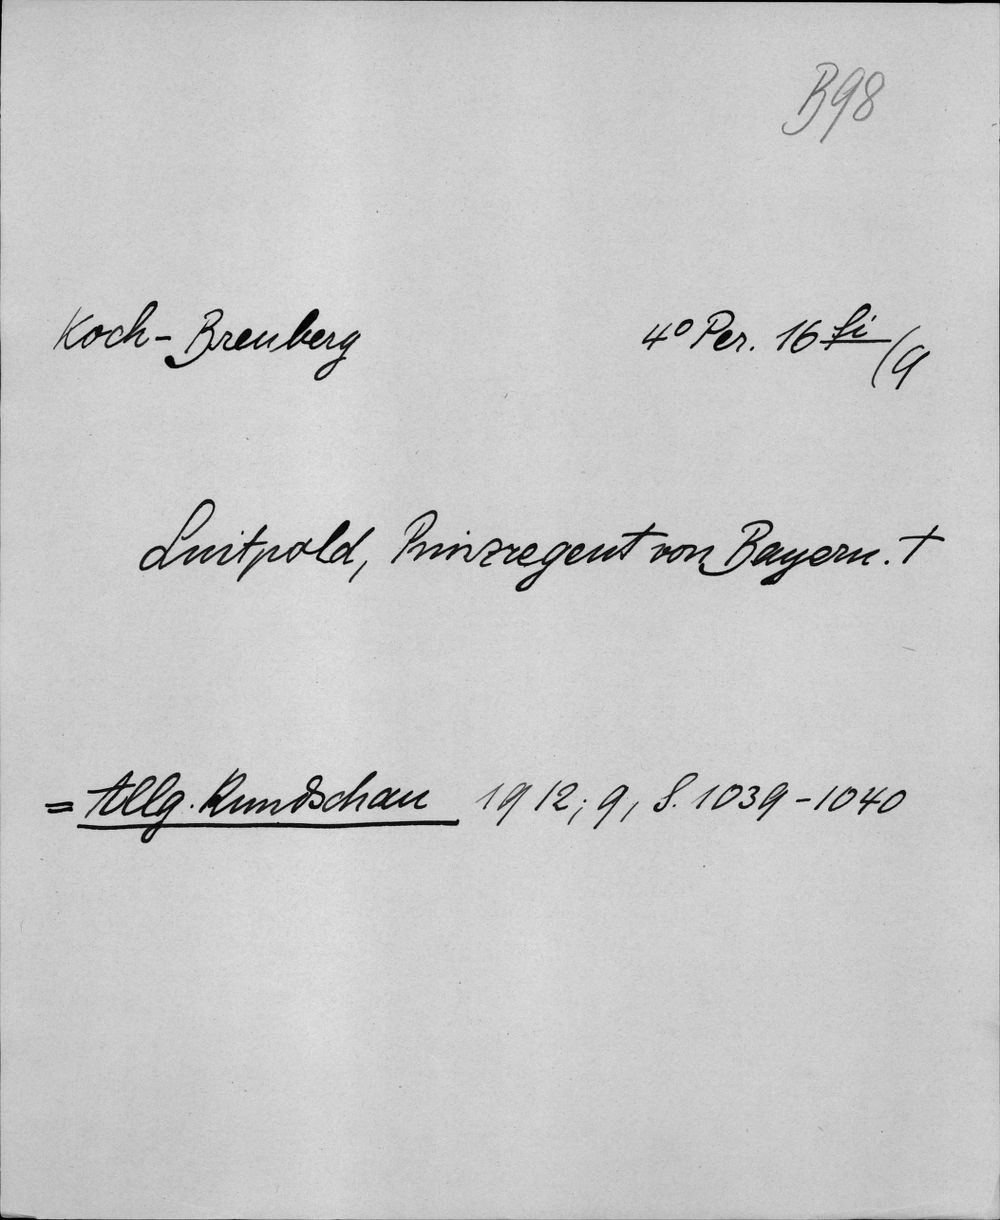 B98
Koch-Breuberg 4° Per. 16 fi/9
Luitpold, Prinzregent von Bayern. †
= Allg. Rundschau 1912; 9, S. 1039-1040